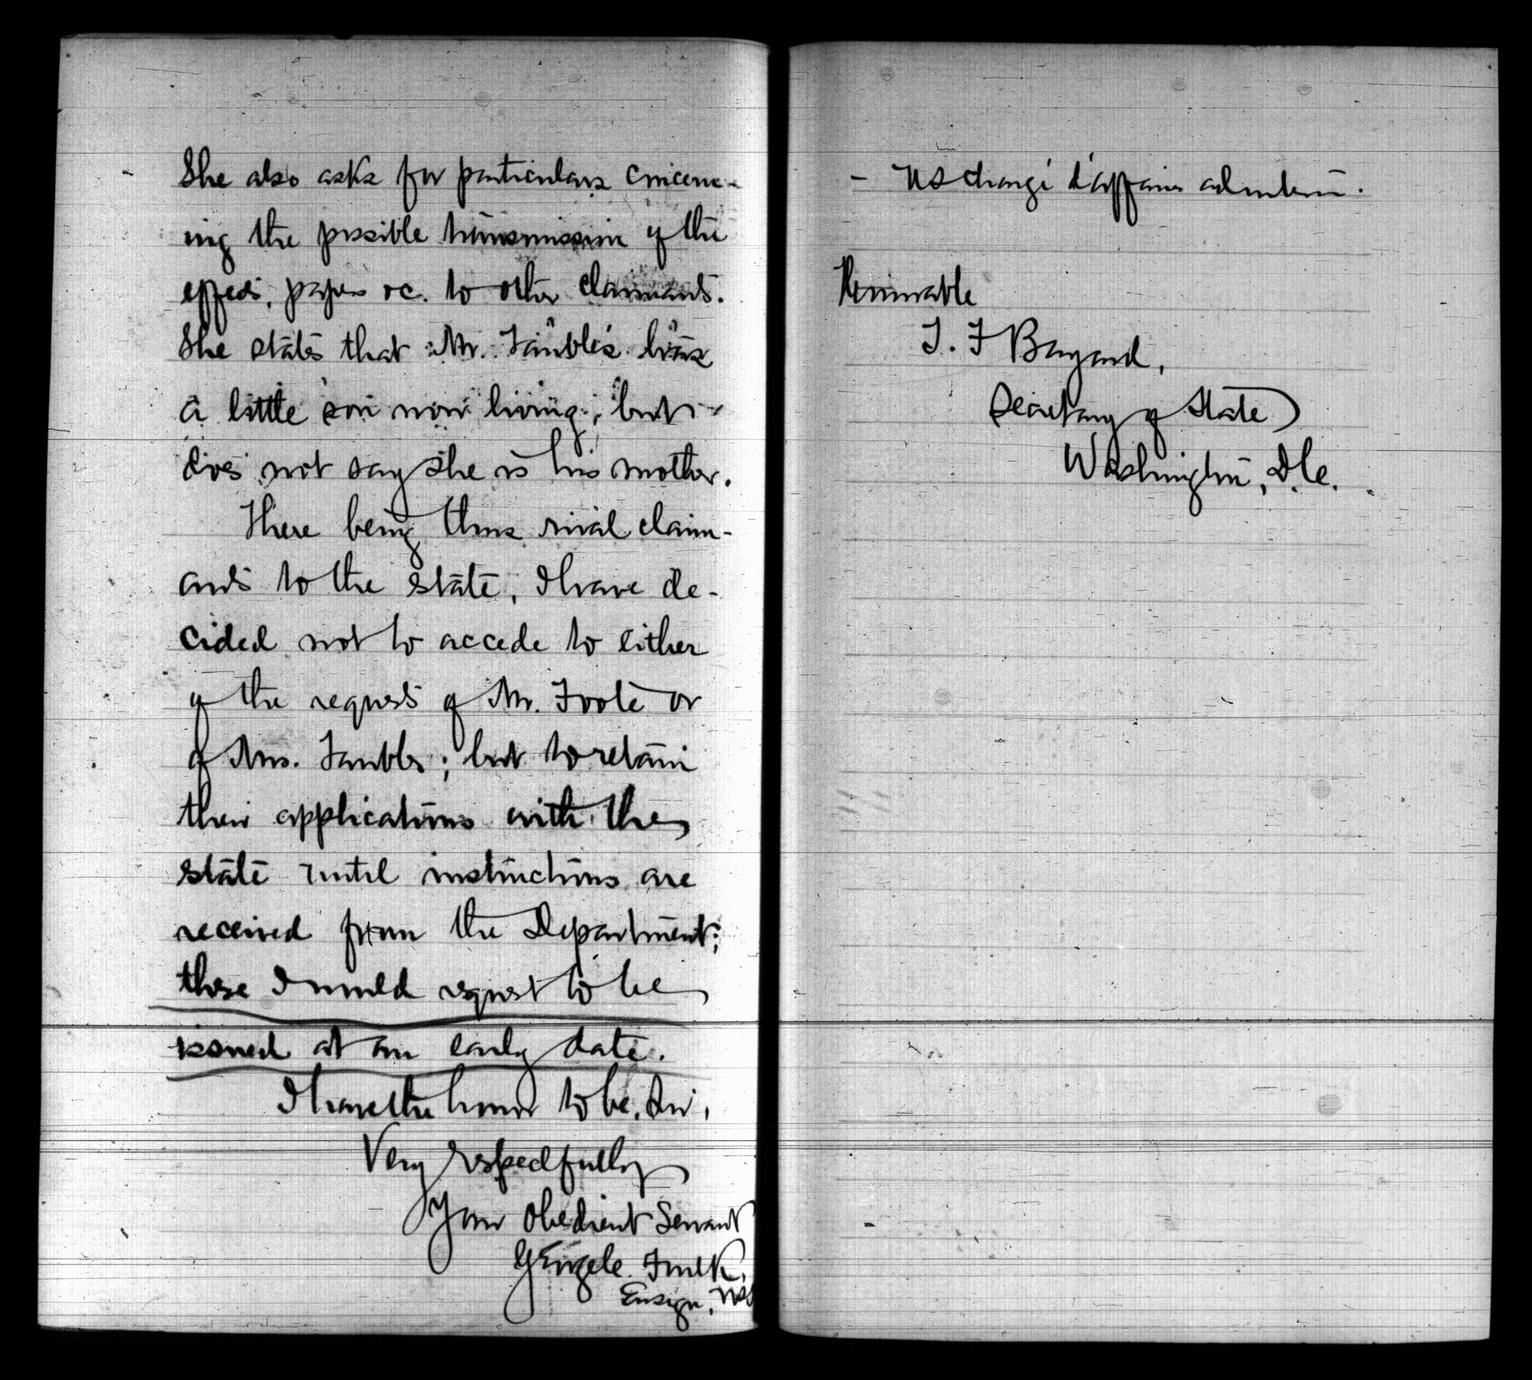 She also asks for particulars concern-
ing the possible transmission of the
effects, papers &c. to other claimants.
She states that Mr. Taubles has
a little son now living; but
does not say she is his mother.
There being thus rival claim-
ants to the state, I have de-
cided not to accede to either
of the requests of Mr. Foote or
of Mrs. Taubles; but to retain
their applications with the
state until instructions are
received from the Department;
these I would request to be
issued at an early date.
I have the honor to be, Sir,
Very respectfully
Your Obedient Servant
George C. Foulk,
Ensign, US
- US chargé d'affaires ad interim.
Honorable
T. F Bayard,
Secretary of State
Washington, D.C.